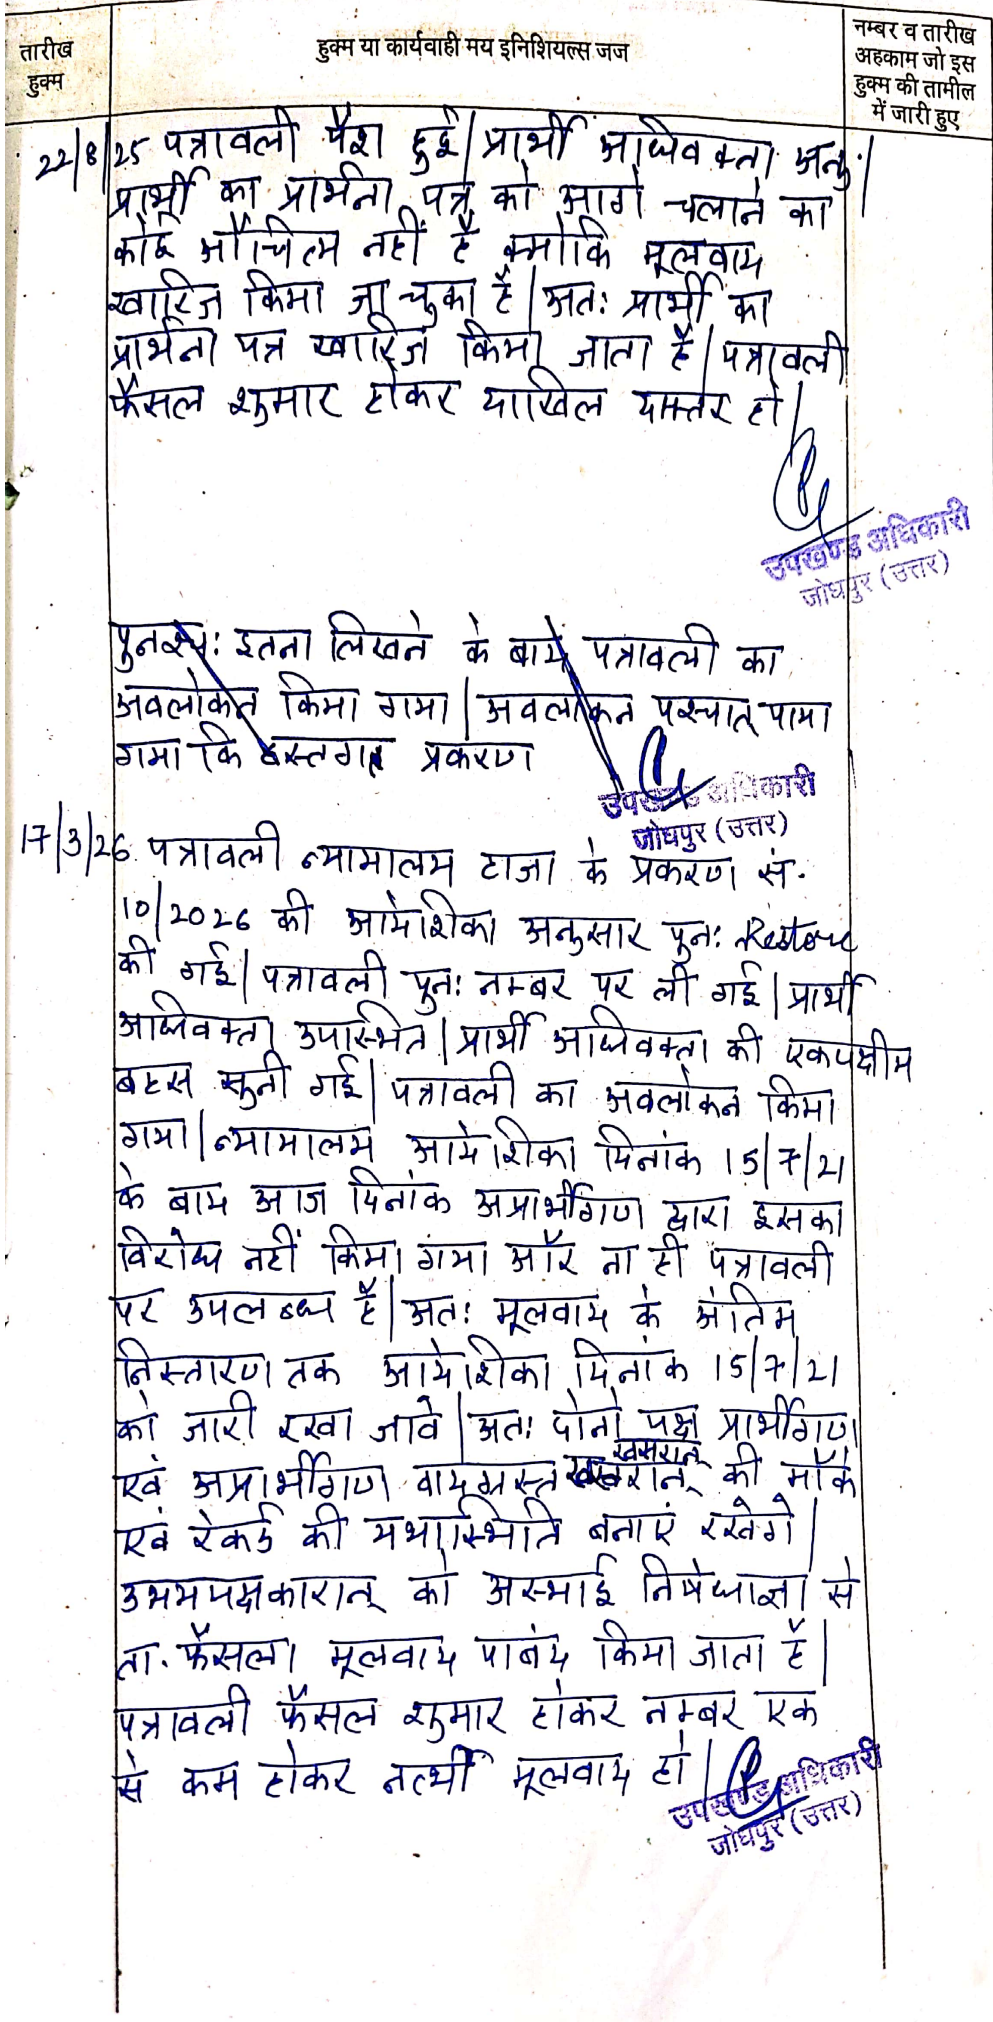 तारीख
हुक्म
हुक्म या कार्यवाही मय इनिशियल्स जज
नम्बर व तारीख
अहकाम जो इस
हुक्म की तामील
में जारी हुए
22/8/25 पत्रावली पेश हुई। प्रार्थी अधिवक्ता अनु.।
प्रार्थी का प्रार्थना पत्र को आगे चलाने का
कोई औचित्य नहीं है क्योंकि मूलवाद
खारिज किया जा चुका है। अतः प्रार्थी का
प्रार्थना पत्र खारिज किया जाता है। पत्रावली
फैसल शुमार होकर दाखिल दफ्तर हो।
उपखण्ड अधिकारी
जोधपुर (उत्तर)
पुनश्च: इतना लिखने के बाद पत्रावली का
अवलोकन किया गया। अवलोकन पश्चात् पाया
गया कि हस्तगत प्रकरण
उपखण्ड अधिकारी
जोधपुर (उत्तर)
17/3/26 पत्रावली न्यायालय हाजा के प्रकरण सं.
10/2026 की आदेशिका अनुसार पुनः Restore
की गई। पत्रावली पुनः नम्बर पर ली गई। प्रार्थी
अधिवक्ता उपस्थित। प्रार्थी अधिवक्ता की एकपक्षीय
बहस सुनी गई। पत्रावली का अवलोकन किया
गया। न्यायालय आदेशिका दिनांक 15/7/21
के बाद आज दिनांक अप्रार्थीगण द्वारा इसका
विरोध नहीं किया गया और ना ही पत्रावली
पर उपलब्ध है। अतः मूलवाद के अंतिम
निस्तारण तक आदेशिका दिनांक 15/7/21
को जारी रखा जावे। अतः दोनो पक्ष प्रार्थीगण
खसरान्
एवं अप्रार्थीगण वादग्रस्त की मौके
एवं रेकर्ड की यथास्थिति बनाएं रखेगे।
उभयपक्षकारान् को अस्थाई निषेधाज्ञा से
ता. फैसला मूलवाद पाबंद किया जाता है।
पत्रावली फैसल शुमार होकर नम्बर एक
से कम होकर नत्थी मूलवाद हो।
उपखण्ड अधिकारी
जोधपुर (उत्तर)